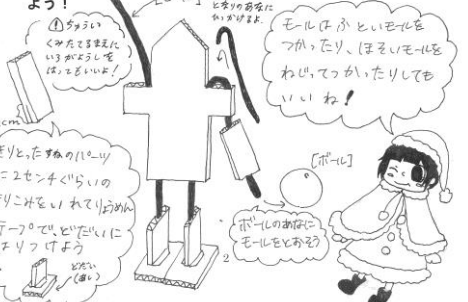 よう！
となりのあなに
ひっかけるよ。
ちゅうい
くみたてるまえに
いろがようしを
はってもいいよ！
モールはふといモールを
つかったり、ほそいモールを
ねじってつかったりしても
いいね！
cm
きりとったすねのパーツ
に2センチぐらいの
きりこみをいれてりょうめん
テープで、どだいに
はりつけよう
どだい
[ボール]
ボールのあなに
モールをとおそう
2